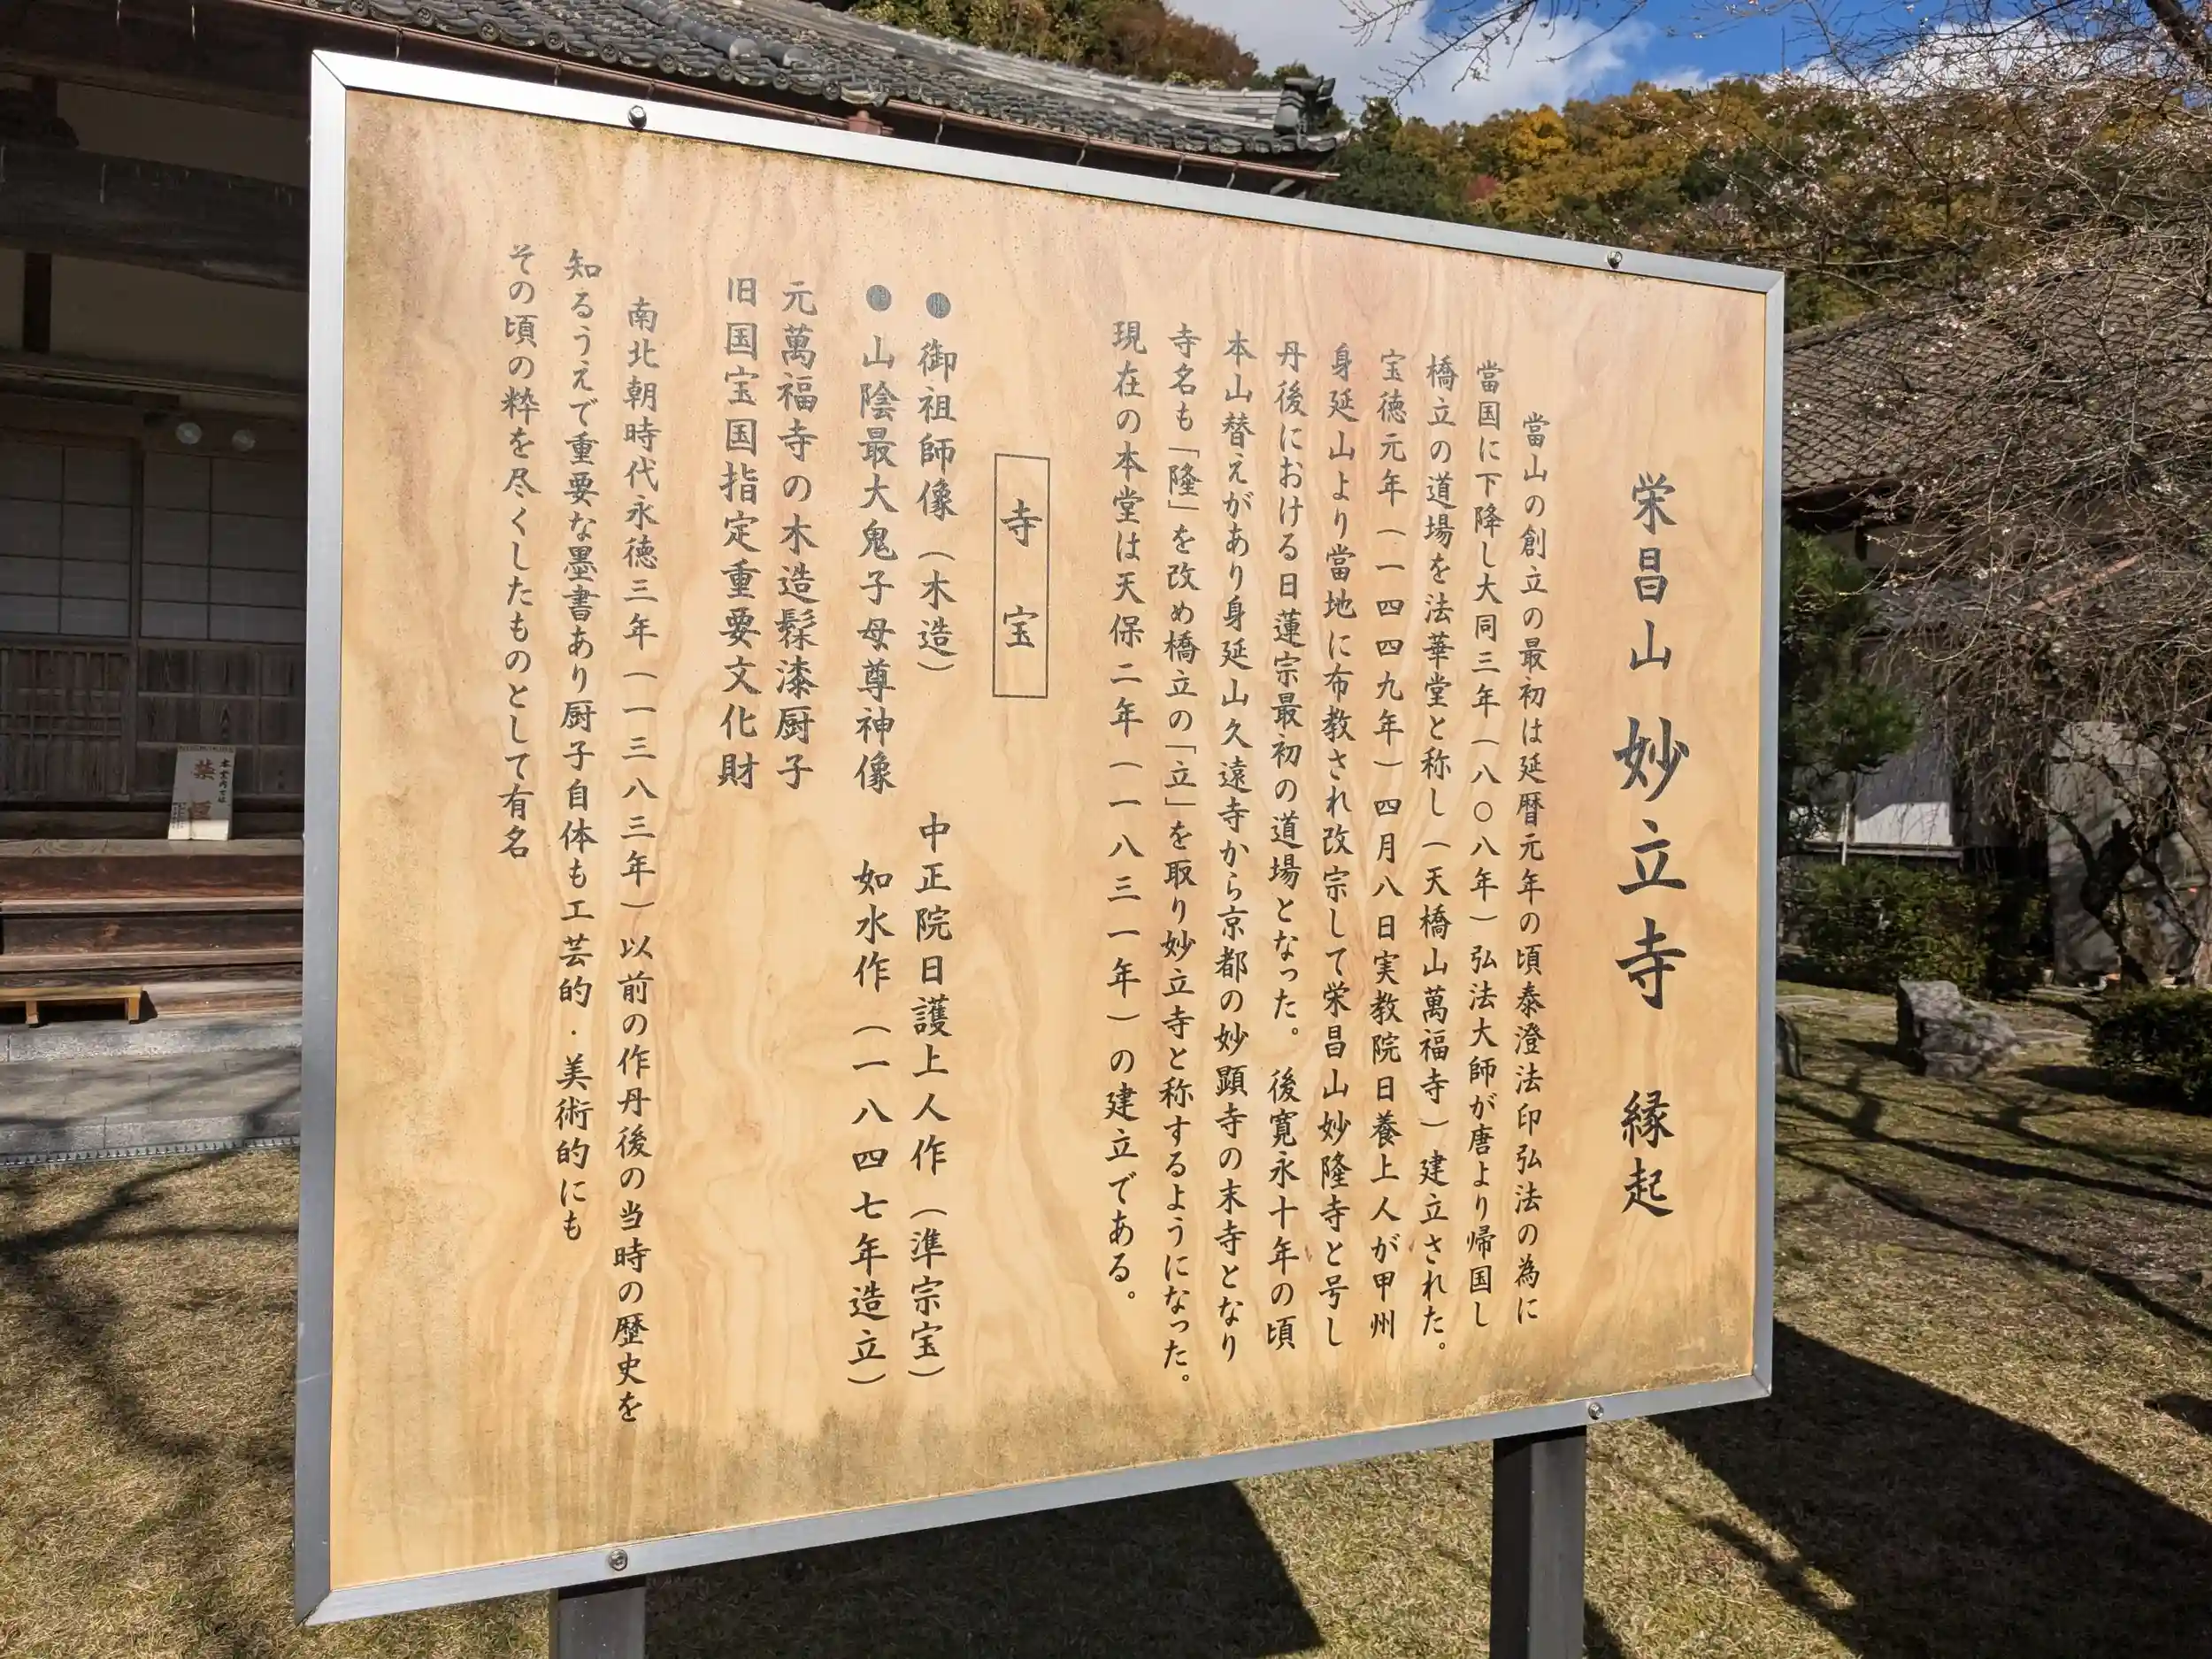 栄昌山 妙立寺 縁起
當山の創立の最初は延暦元年の頃泰澄法印弘法の為に
當国に下降し大同三年(八〇八年)弘法大師が唐より帰国し
橋立の道場を法華堂と称し(天橋山萬福寺)建立された。
宝徳元年(一四四九年)四月八日実教院日養上人が甲州
身延山より當地に布教され改宗して栄昌山妙隆寺と号し
丹後における日蓮宗最初の道場となった。後寛永十年の頃
本山替えがあり身延山久遠寺から京都の妙顕寺の末寺となり
寺名も「隆」を改め橋立の「立」を取り妙立寺と称するようになった。
現在の本堂は天保二年(一八三一年)の建立である。
寺宝
●御祖師像(木造) 中正院日護上人作(準宗宝)
●山陰最大鬼子母尊神像 如水作(一八四七年造立)
元萬福寺の木造髹漆厨子
旧国宝国指定重要文化財
南北朝時代永徳三年(一三八三年)以前の作丹後の当時の歴史を
知るうえで重要な墨書あり厨子自体も工芸的・美術的にも
その頃の粋を尽くしたものとして有名
禁